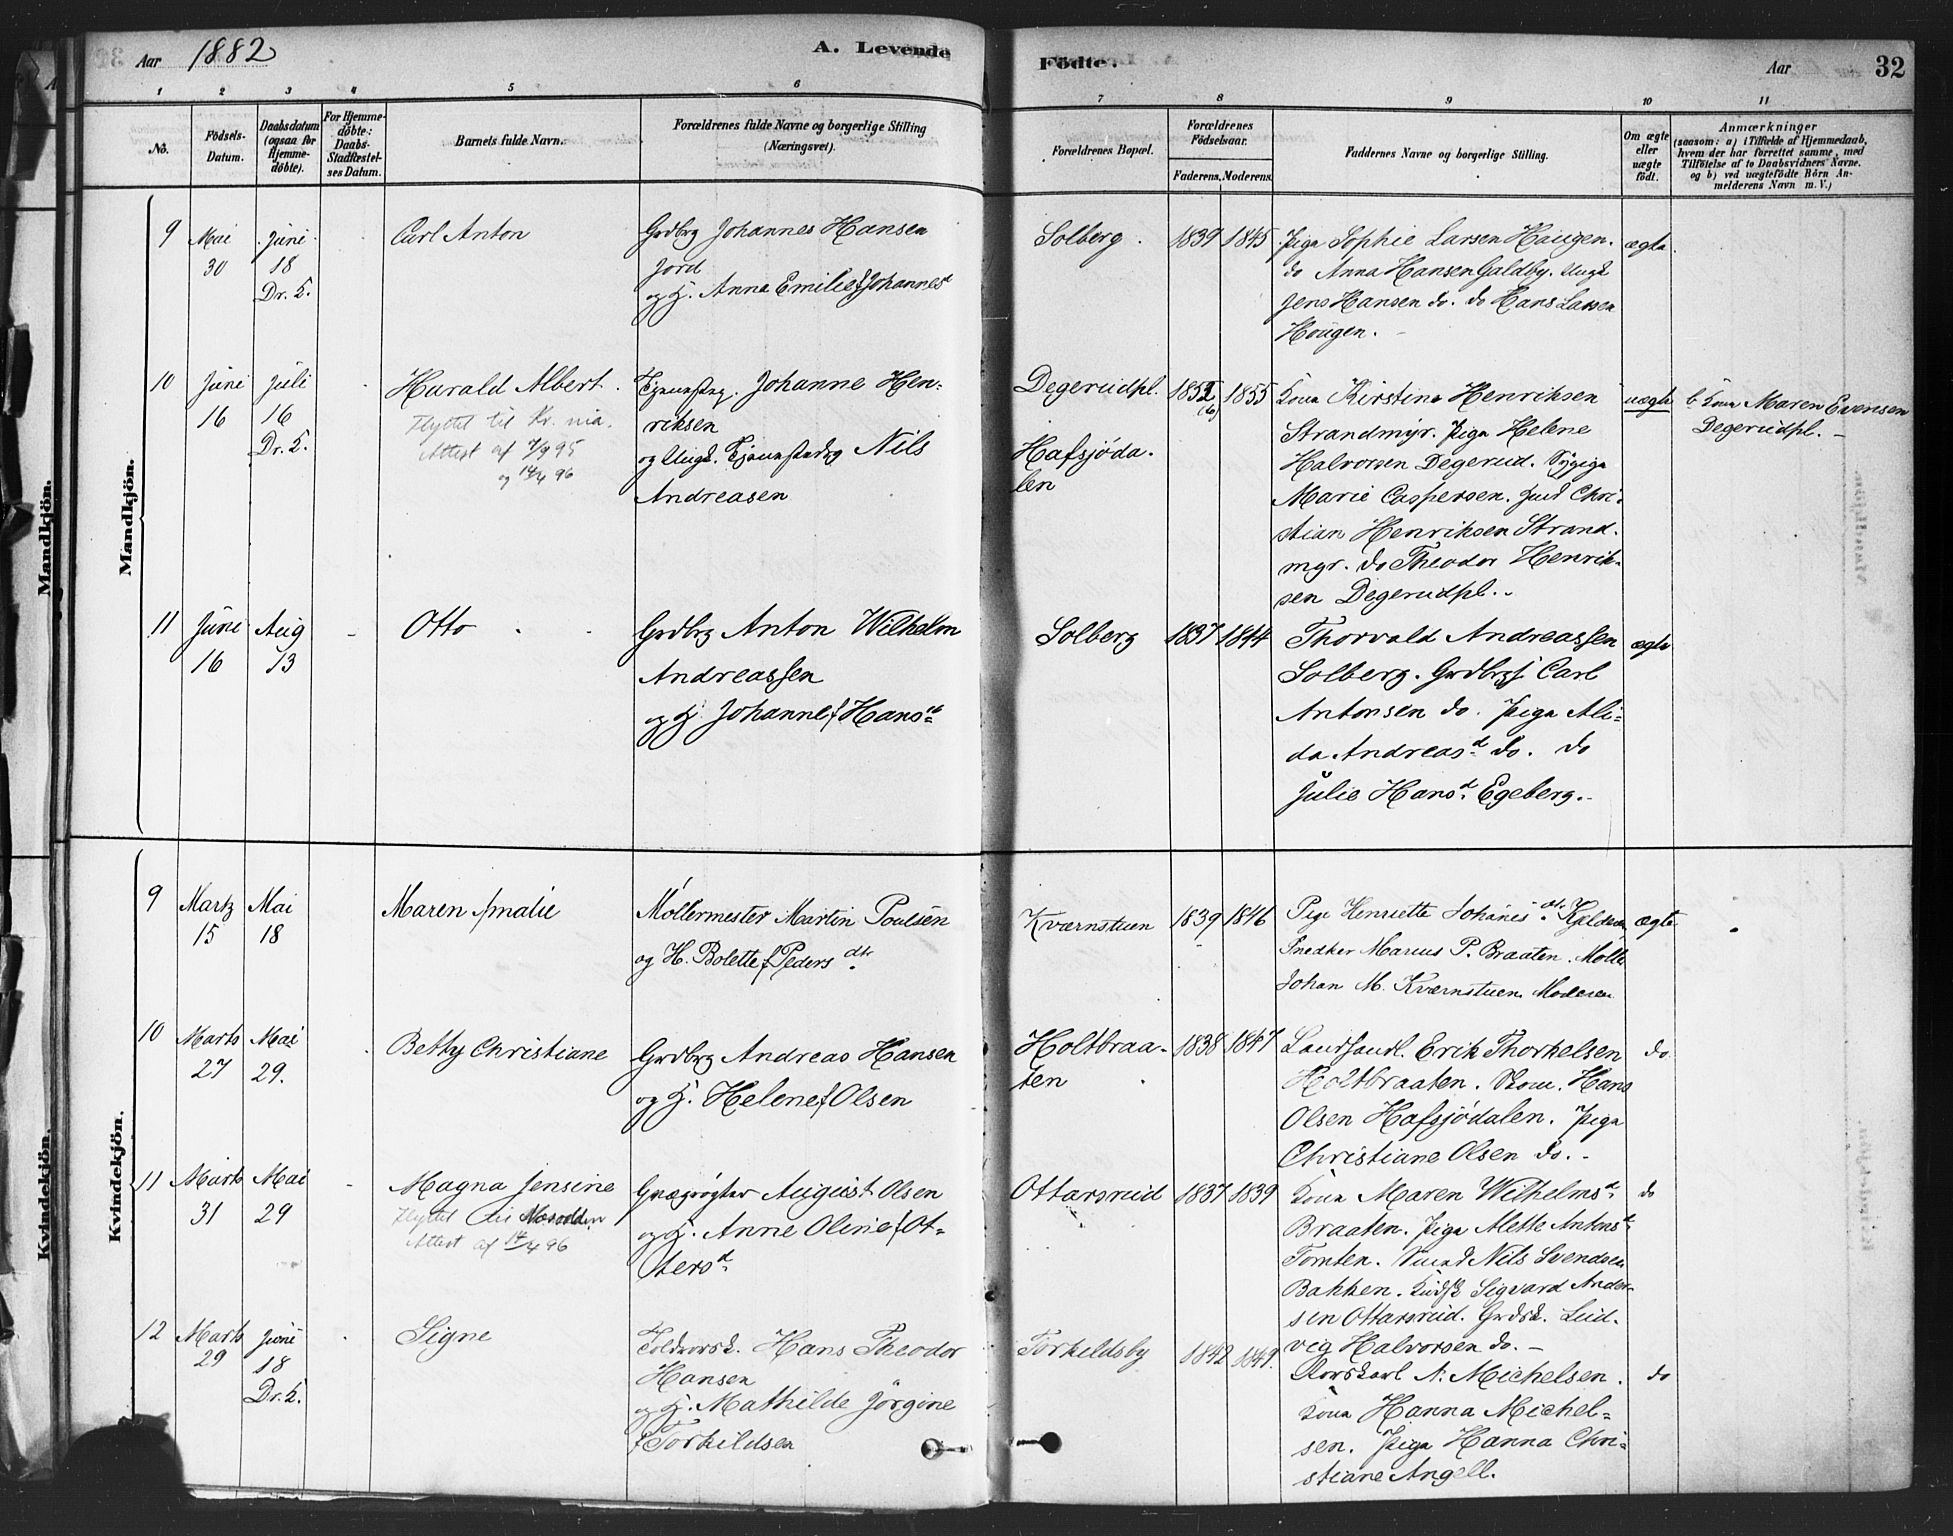 Aar 1882
A. Levende
Födte.
Aar
32
1 2 3 4 5 6 7 8 9 10 11
No.
Födsels-
Datum.
Daabsdatum
(ogsaa for
Hjemme-
döbte).
For Hjemme-
döbte:
Daabs-
Stadfæstel-
ses Datum.
Barnets fulde Navn.
Forældrenes fulde Navne og borgerlige Stilling
(Næringsvei).
Forældrenes Bopæl.
Forældrenes
Födselsaar.
Faderens. Moderens.
Faddernes Navne og borgerlige Stilling.
Om ægte
eller
uægte
födt.
Anmærkninger
(saasom: a) i Tilfælde af Hjemmedaab,
hvem der har forrettet samme, med
Tilföielse af to Daabsvidners Navne.
og b) ved uægtefödte Börn An-
melderens Navn m. V.)
Mandkjön.
Mandkjön.
9
Mai
30
Juni
18
Dr. K.
Carl Anton
Grdbrg Johannes Hansen
Jord
og H. Anna Emilie f Johannesd
Solberg.
1839 1845
Piga Sophie Larsen Haugen.
do Anna Hansen Galdby. Ungk
Jens Hansen do. do Hans Larsen
Hougen.
ægte
10
Juni
16
Juli
16
Dr. K.
Harald Albert
Flyttet til Kr. nia.
Attest af 7/9 95
og 14/4 96
Tjenestepg. Johanne Hen-
riksen
og Ungk. Tjenestedrg Nils
Andreasen
Degerudpl.
Hafsjöda-
len
1852 1855
Kona Kirstine Henriksen
Strandmyr. Piga Helene
Halvorsen Degerud. Sypiga
Marie Caspersen. Chri-
stian Henriksen Strand-
myr. do Theodor Henrik-
sen Degerudpl.
uægte
b Kona Maren Evensen
Degerudpl.
11
Juni
16
Aug
13
Otto
Grdbrg Anton Wilhelm
Andreassen
og H. Johanne f Hansd
Solberg
1837 1844
Thorvald Andreassen
Solberg. Grdbrgs Carl
Antonsen do. Piga Ali-
da Andreasd do. do
Julie Hansd Egeberg.
ægte
Kvindekjön.
Kvindekjön.
9
Martz
15
Mai
18
Maren Amalie
Möllermester Martin Poulsen
og H. Bolette f Peders dtr.
Kværnstuen
1839 1846
Pige Henriette Johanis dtr. Kjelderen
Snedker Marius P. Braaten. Mölle
Johan M. Kværnstuen Moderen
ægte
10
Marts
27
Mai
29.
Betty Christiane
Grdbrg Andreas Hansen
og H. Helene f Olsen
Holtbraa-
ten
1838 1847
Landhandl. Erik Thorkelsen
Holtbraaten. Skom. Hans
Olsen Hafsjödalen. Piga
Christiane Olsen do.
do
11
Marts
31
Mai
29
Magna Jensine
Flyttet til Nesodden
Attest af 14/4 96
Grægrögter August Olsen
og H. Anne Oline f Ot-
tersd
Ottarsrud
1837 1839
Kona Maren Wilhelmsd
Braaten. Piga Alette Antonsd
Tomten. Nils Svendsen
Bakken. Kudsk Sigvard Ander-
sen Ottarsrud. Grdsk. Lud-
vig Halvorsen do.
do
12
Marts
29
Juni
18
Dr. K.
Signe
Toldrorsk. Hans Theodor
Hansen
og H. Mathilde Jörgine
f Torkildsen
Torkildsby
1842 1849.
Rorskarl N. Michelsen.
Kona Hanna Michel-
sen. Piga Hanna Chri-
stiane Angell.
do